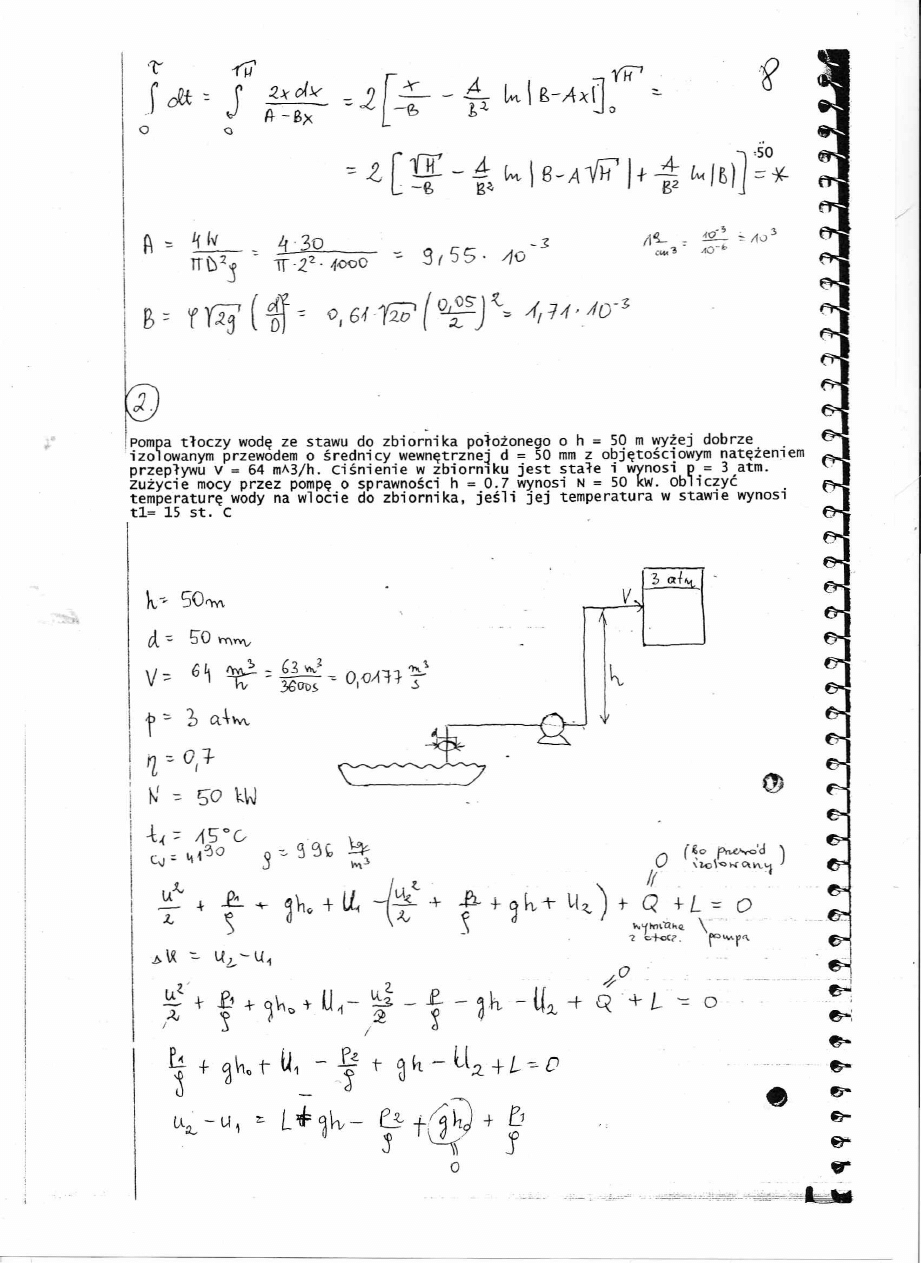 8
τ √H
∫ dt = ∫ 2x dx / (A-Bx) = 2[ x/(-B) - A/B² ln|B-Ax| ]₀^√H =
0 0
= 2[ √H/(-B) - A/B² ln|B-A√H| + A/B² ln|B| ] = *
50
A = 4W/(πD²ρ) = 4·30/(π·2²·1000) = 9,55·10⁻³
1 g/cm³ = 10⁻³/10⁻⁶ = 10³
B = φ√2g (d/D)² = 0,61·√20 (0,05/2)² = 1,71·10⁻³
2.
Pompa tłoczy wodę ze stawu do zbiornika położonego o h = 50 m wyżej dobrze
izolowanym przewodem o średnicy wewnętrznej d = 50 mm z objętościowym natężeniem
przepływu V = 64 m^3/h. Ciśnienie w zbiorniku jest stałe i wynosi p = 3 atm.
Zużycie mocy przez pompę o sprawności h = 0.7 wynosi N = 50 kW. Obliczyć
temperaturę wody na wlocie do zbiornika, jeśli jej temperatura w stawie wynosi
t1= 15 st. C
3 atm
V
h
d
h = 50m
d = 50 mm
V = 64 m³/h = 63 m³/3600s = 0,0177 m³/s
p = 3 atm
η = 0,7
N = 50 kW
t₁ = 15°C
cᵥ = 4190 ρ = 996 kg/m³
0 (bo przewód izolowany)
u²/2 + p₁/ρ + gh₀ + U₁ - (u₂²/2 + p₂/ρ + gh + U₂) + Q + L = 0
wymiana z otocz. pompa
ΔU = U₂ - U₁
u²/2 + p₁/ρ + gh₀ + U₁ - u₂²/2 - p/ρ - gh - U₂ + Q + L = 0
0
p₁/ρ + gh₀ + U₁ - p₂/ρ + gh - U₂ + L = 0
u₂ - u₁ = L - gh - p₂/ρ + gh₀ + p₁/ρ
0